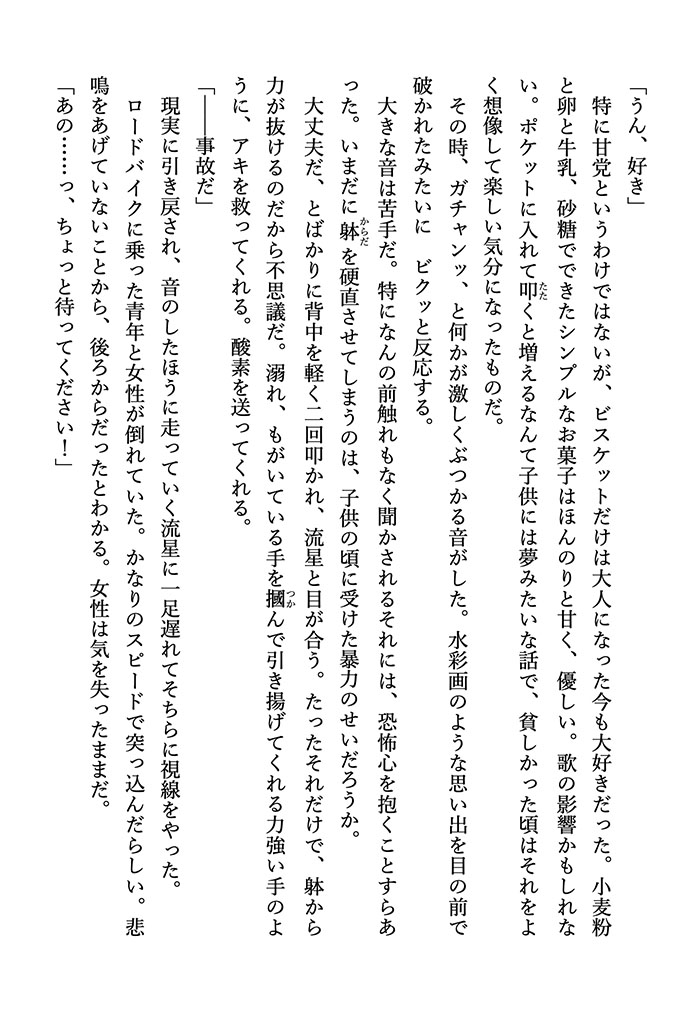 「うん、好き」
　特に甘党というわけではないが、ビスケットだけは大人になった今も大好きだった。小麦粉
と卵と牛乳、砂糖でできたシンプルなお菓子はほんのりと甘く、優しい。歌の影響かもしれな
い。ポケットに入れて叩くと増えるなんて子供には夢みたいな話で、貧しかった頃はそれをよ
く想像して楽しい気分になったものだ。
　その時、ガチャンッ、と何かが激しくぶつかる音がした。水彩画のような思い出を目の前で
破かれたみたいに　ビクッと反応する。
　大きな音は苦手だ。特になんの前触れもなく聞かされるそれには、恐怖心を抱くことすらあ
った。いまだに躰を硬直させてしまうのは、子供の頃に受けた暴力のせいだろうか。
　大丈夫だ、とばかりに背中を軽く二回叩かれ、流星と目が合う。たったそれだけで、躰から
力が抜けるのだから不思議だ。溺れ、もがいている手を摑んで引き揚げてくれる力強い手のよ
うに、アキを救ってくれる。酸素を送ってくれる。
「――事故だ」
　現実に引き戻され、音のしたほうに走っていく流星に一足遅れてそちらに視線をやった。
　ロードバイクに乗った青年と女性が倒れていた。かなりのスピードで突っ込んだらしい。悲
鳴をあげていないことから、後ろからだったとわかる。女性は気を失ったままだ。
「あの……っ、ちょっと待ってください！」